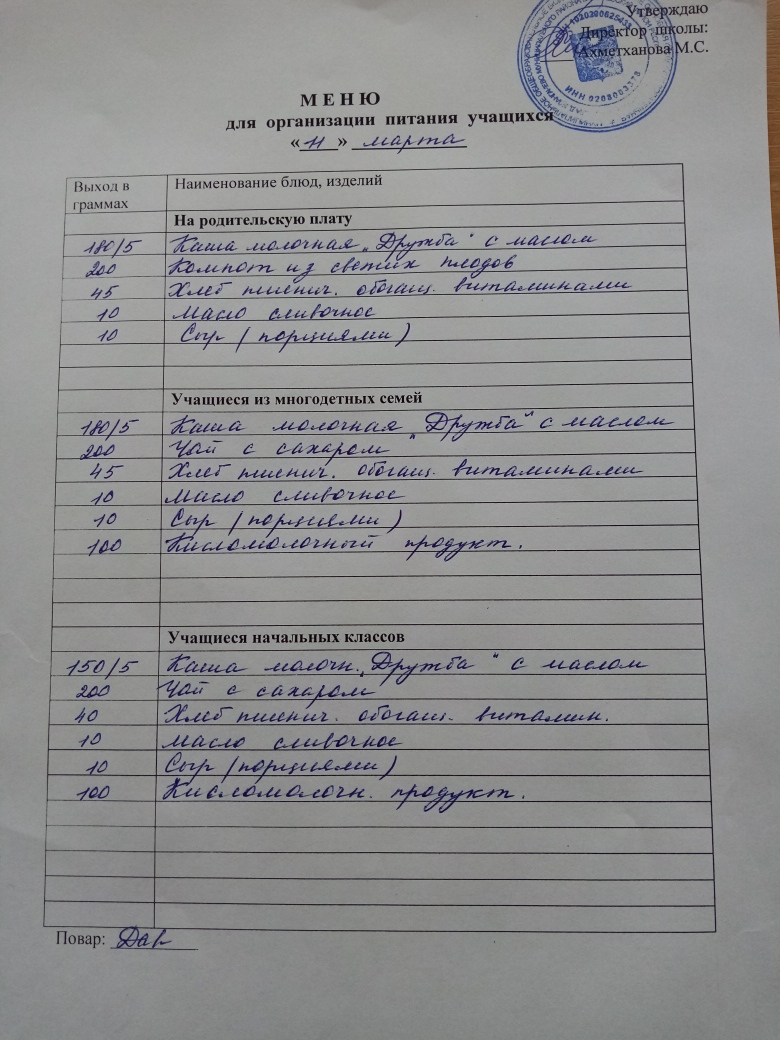 Утверждаю
Директор школы:
Ахметханова М.С.
ИНН 0208003378
М Е Н Ю
для организации питания учащихся
«11» марта
Выход в граммах Наименование блюд, изделий
На родительскую плату
180/5 Каша молочная „Дружба" с маслом
200 Компот из свежих плодов
45 Хлеб пшенич. обогащ. витаминами
10 Масло сливочное
10 Сыр (порциями)
Учащиеся из многодетных семей
180/5 Каша молочная „Дружба" с маслом
200 Чай с сахаром
45 Хлеб пшенич. обогащ. витаминами
10 Масло сливочное
10 Сыр (порциями)
100 Кисломолочный продукт.
Учащиеся начальных классов
150/5 Каша молочн. „Дружба" с маслом
200 Чай с сахаром
40 Хлеб пшенич. обогащ. витамин.
10 Масло сливочное
10 Сыр (порциями)
100 Кисломолочн. продукт.
Повар: